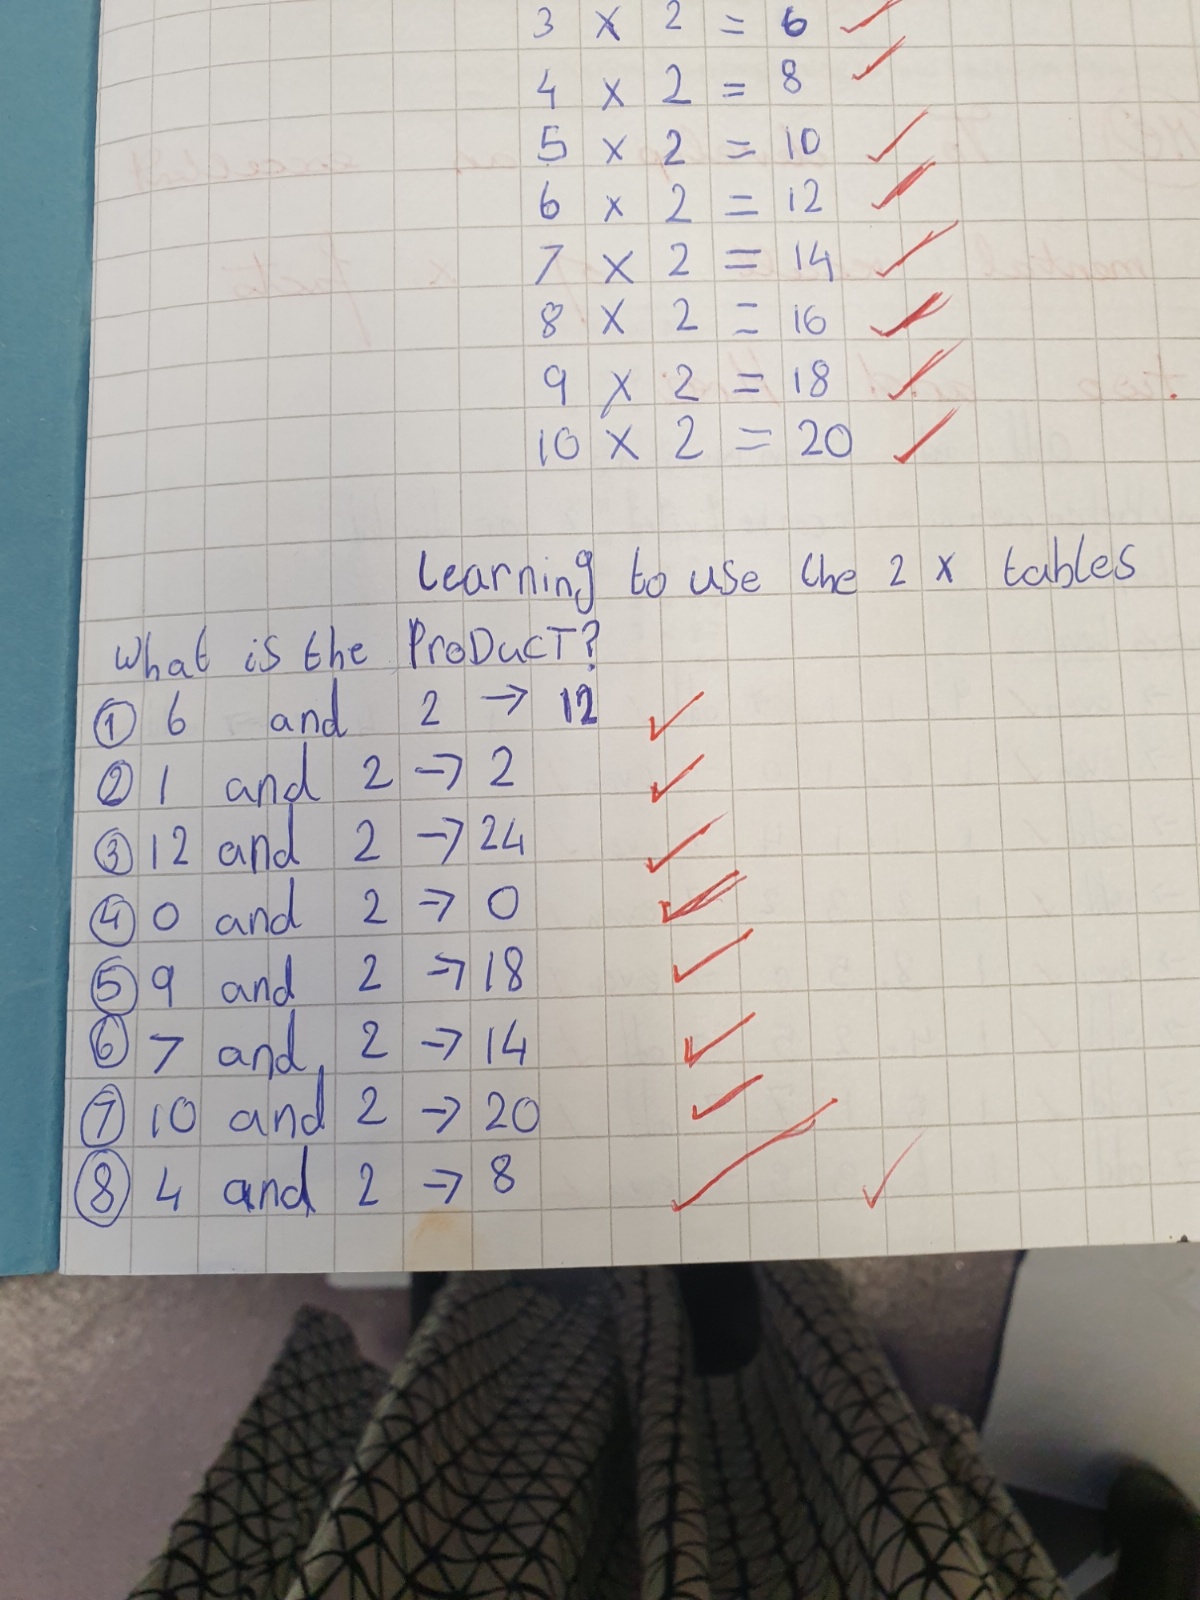 3 x 2 = 6
4 x 2 = 8
5 x 2 = 10
6 x 2 = 12
7 x 2 = 14
8 x 2 = 16
9 x 2 = 18
10 x 2 = 20
Learning to use the 2 x tables
What is the ProDucT?
① 6 and 2 → 12
② 1 and 2 → 2
③ 12 and 2 → 24
④ 0 and 2 → 0
⑤ 9 and 2 → 18
⑥ 7 and 2 → 14
⑦ 10 and 2 → 20
⑧ 4 and 2 → 8